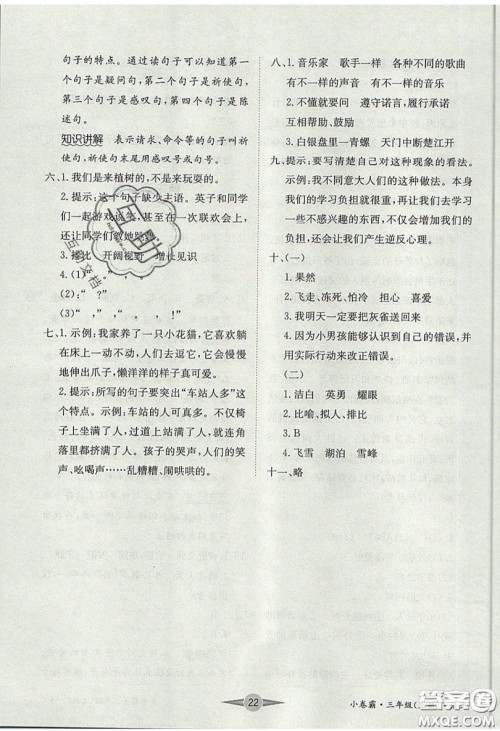 句子的特点。通过读句子可以知道,第一个
句子是疑问句,第二个句子是祈使句,第
三个句子是感叹句,第四个句子是陈
述句。
知识讲解 表示请求、命令等的句子叫祈
使句。祈使句末尾用感叹号或句号。
六、1. 我们是来植树的,不是来玩耍的。
2. 提示:这个句子缺少主语。英子和同学
们一起游戏谈笑,甚至在一次联欢会上,
让同学们教她跳舞
3. 排比 开阔视野 增长见识
4. (1)“ ”
(2):“ ?”
(3)“ ,”  “ 。 !”
七、1. 示例:我家养了一只小花猫,它喜欢躺
在床上一动不动,人们去逗它,它会慢慢
地伸出爪子,懒洋洋的样子真可爱。
2. 提示:所写的句子要突出“车站人多”这
个特点。示例:车站的人可真多。不仅椅
子上坐满了人,过道上站满了人,就连角
落里都挤满了人。孩子的哭声,人们的笑
声、吆喝声……乱糟糟、闹哄哄的。
八、1. 音乐家 歌手一样 各种不同的歌曲
有不一样的声音 有不一样的音乐
2. 不懂就要问 遵守诺言,履行承诺
互相帮助、鼓励
3. 白银盘里一青螺 天门中断楚江开
九、提示:要写清楚自己对这种现象的看法。
示例:我不同意大人们的这种做法。本身
我们的学习负担就很重,再让我们去学习
一些不感兴趣的东西,会增加我们的学习
负担,还会让我们产生逆反心理。
十、(一)
1. 果然
2. 飞走、冻死、怕冷 担心 喜爱
3. 我明天一定要把灰雀送回来
4. 因为小男孩能够认识到自己的错误,并
用实际行动来改正错误。
(二)
1. 洁白 英勇 耀眼
2. 比喻、拟人、排比
3. B
4. 飞雪 湖泊 雪峰
十一、略
22
小卷霸·三年级(
MXQE.COM